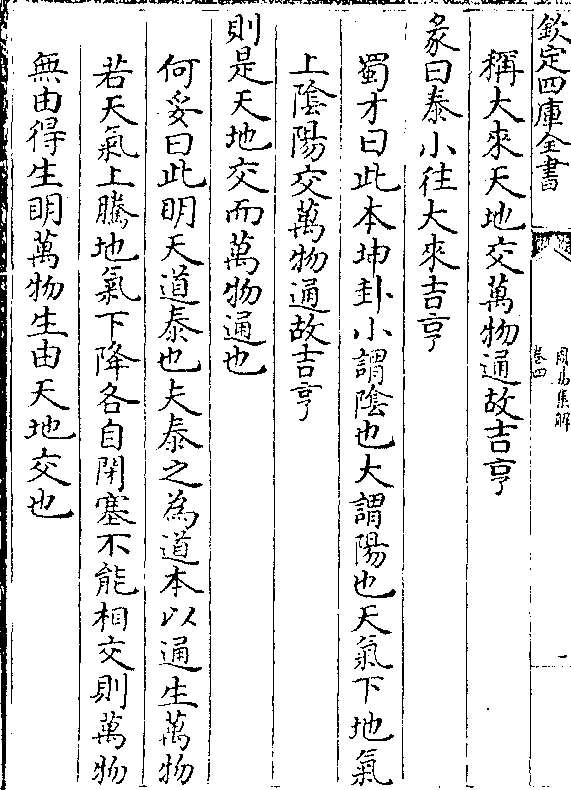 欽定四庫全書
周易集解
卷四
一
稱大來天地交萬物通故吉亨
彖曰泰小往大來吉亨
蜀才曰此本坤卦小謂陰也大謂陽也天氣下地氣
上陰陽交萬物通故吉亨
則是天地交而萬物通也
何妥曰此明天道泰也夫泰之為道本以通生萬物
若天氣上騰地氣下降各自閉塞不能相交則萬物
無由得生明萬物生由天地交也